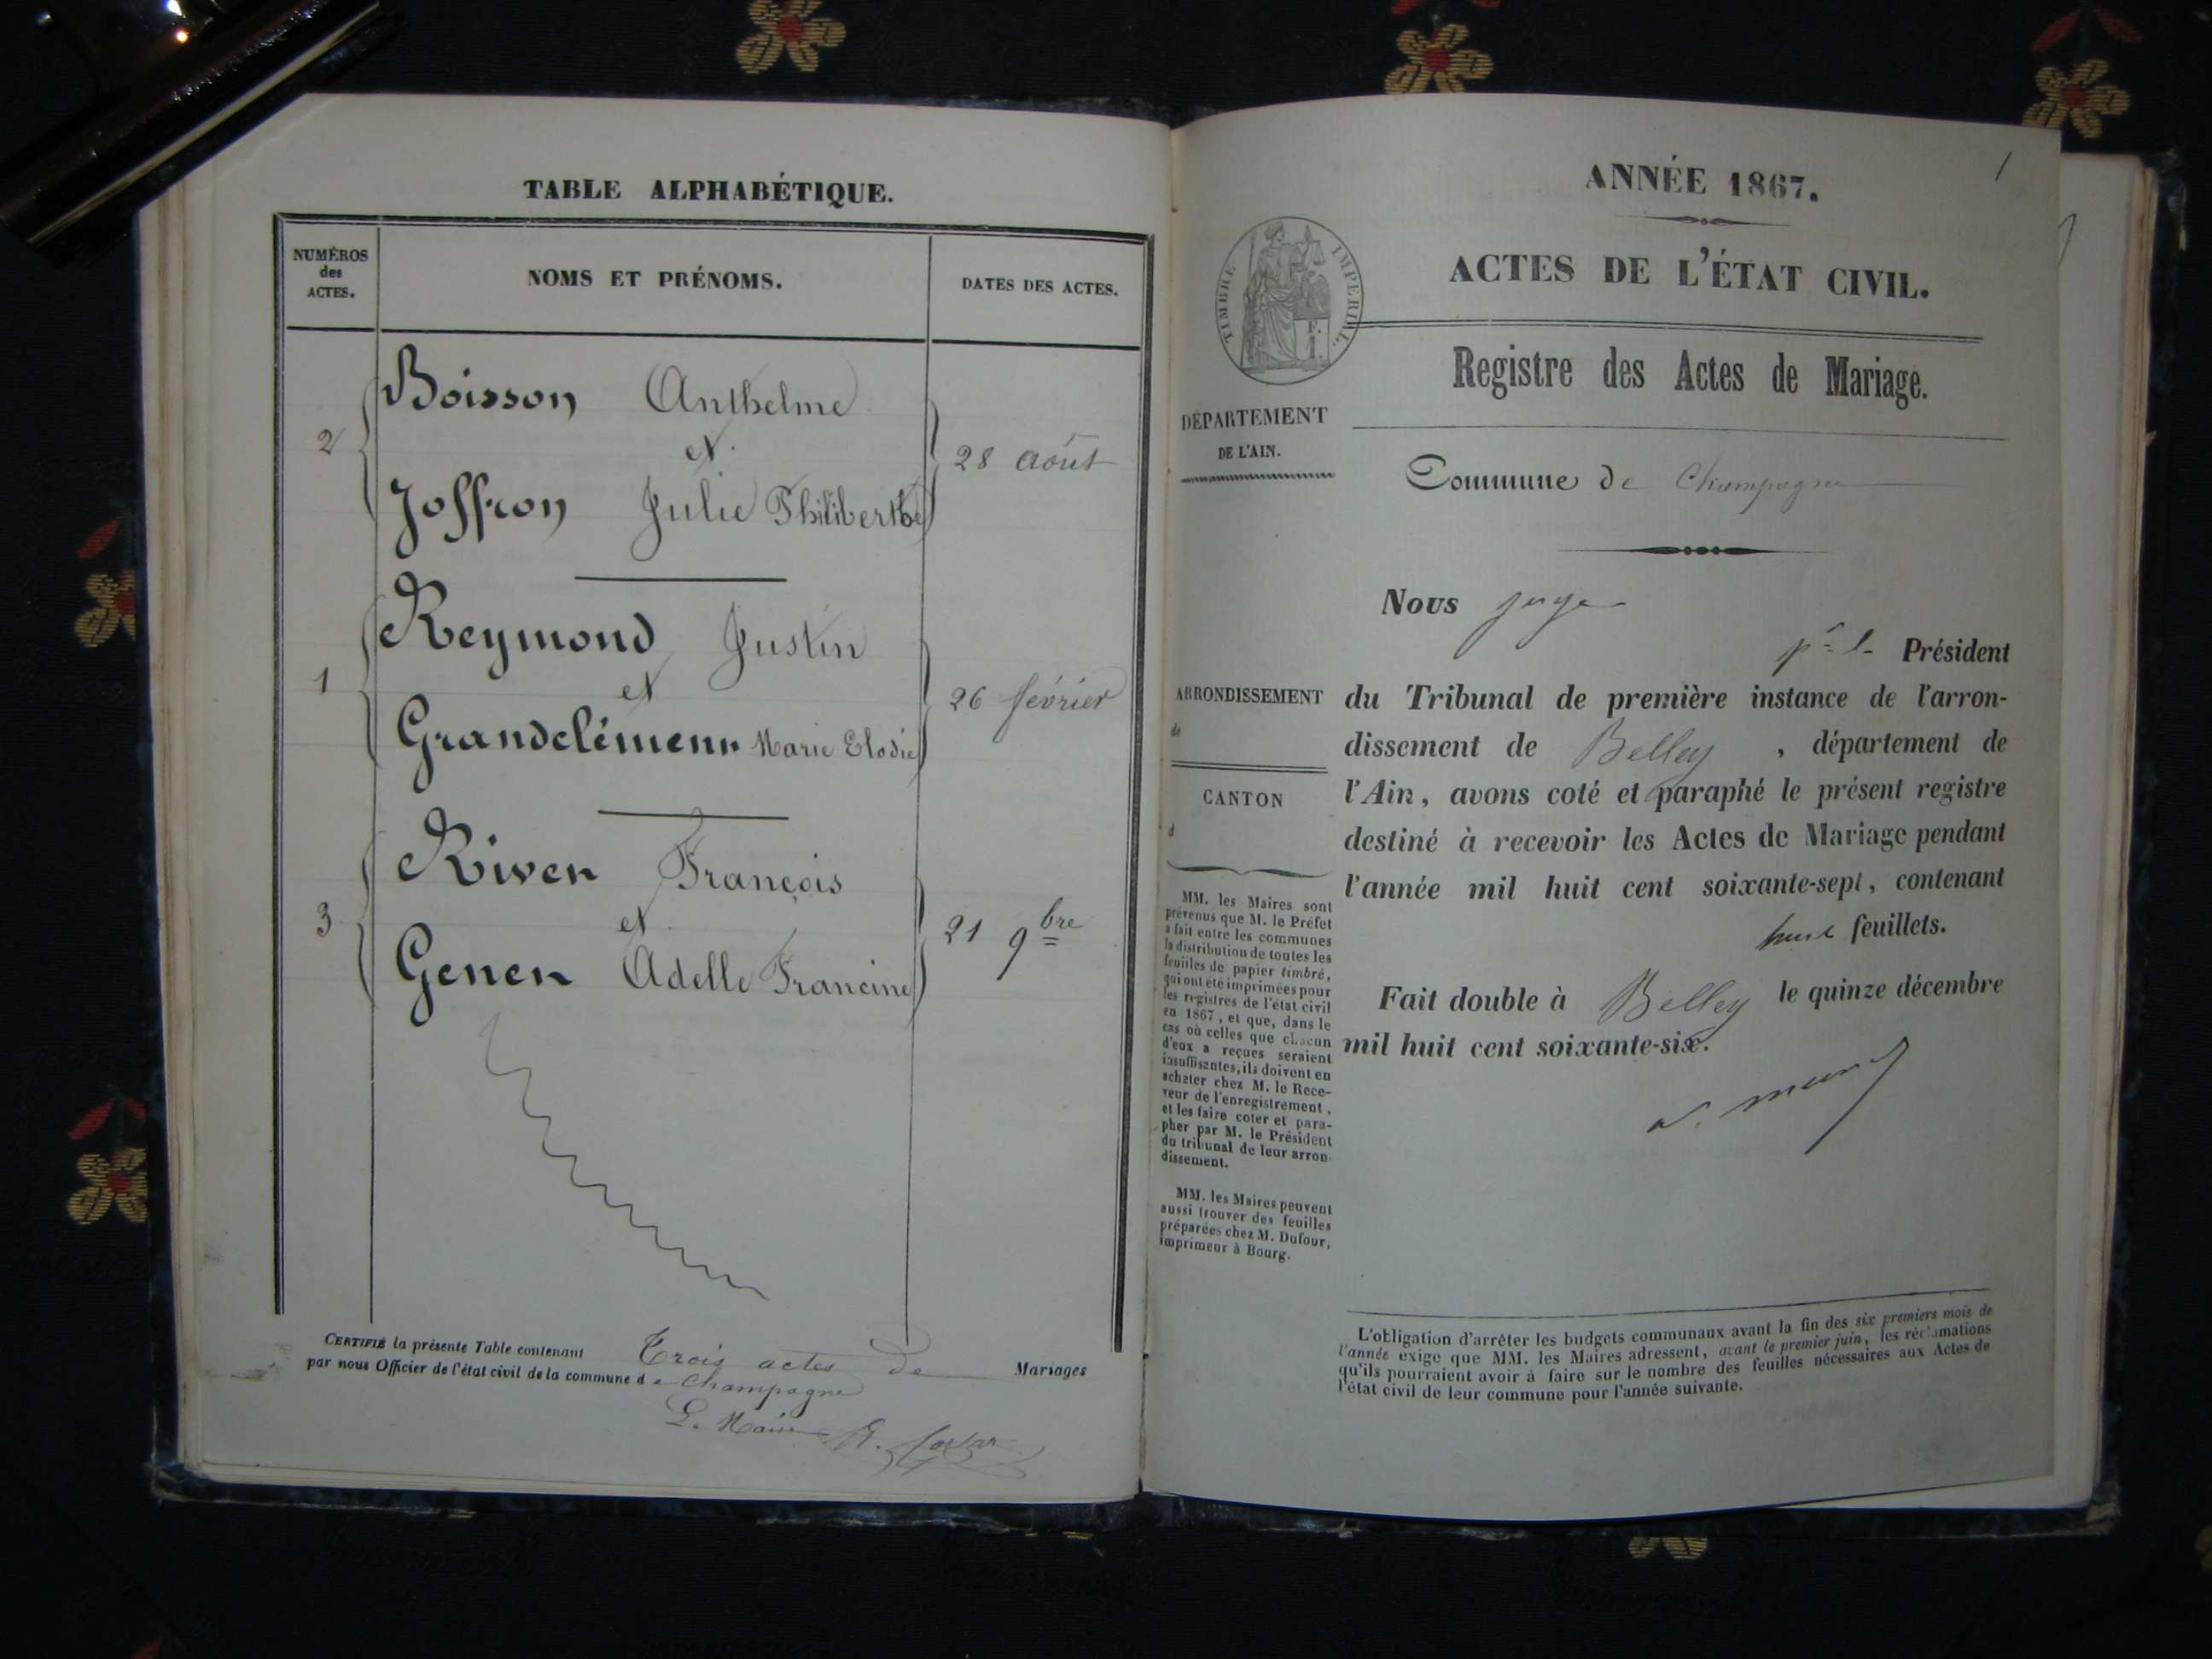 TABLE ALPHABÉTIQUE.
NUMÉROS
des
ACTES.
NOMS ET PRÉNOMS.
DATES DES ACTES.
Boisson Anthelme
et
2
28 août
Joffron Julie Philiberthe
Reymond Justin
et
1
26 février
Grandclément Marie Elodie
Rivet François
et
3
21 9bre
Genet Adelle Francine
CERTIFIÉ la présente Table contenant Trois actes de Mariages
par nous Officier de l'état civil de la commune de Champagne
Le Maire
1
ANNÉE 1867.
ACTES DE L'ÉTAT CIVIL.
TIMBRE IMPERIAL.
Registre des Actes de Mariage.
DÉPARTEMENT
DE L'AIN.
Commune de Champagne
Nous juge
pr le Président
ARRONDISSEMENT
de
CANTON
d
du Tribunal de première instance de l'arron-
dissement de Belley, département de
l'Ain, avons coté et paraphé le présent registre
destiné à recevoir les Actes de Mariage pendant
l'année mil huit cent soixante-sept, contenant
huit feuillets.
Fait double à Belley le quinze décembre
mil huit cent soixante-six.
MM. les Maires sont
prévenus que M. le Préfet
a fait entre les communes
la distribution de toutes les
feuilles de papier timbré,
qui ont été imprimées pour
les registres de l'état civil
en 1867, et que, dans le
cas où celles que chacun
d'eux a reçues seraient
insuffisantes, ils doivent en
acheter chez M. le Rece-
veur de l'enregistrement,
et les faire coter et para-
pher par M. le Président
du tribunal de leur arron-
dissement.
MM. les Maires peuvent
aussi trouver des feuilles
préparées chez M. Dufour,
imprimeur à Bourg.
L'obligation d'arrêter les budgets communaux avant la fin des six premiers mois de
l'année exige que MM. les Maires adressent, avant le premier juin, les réclamations
qu'ils pourraient avoir à faire sur le nombre des feuilles nécessaires aux Actes de
l'état civil de leur commune pour l'année suivante.